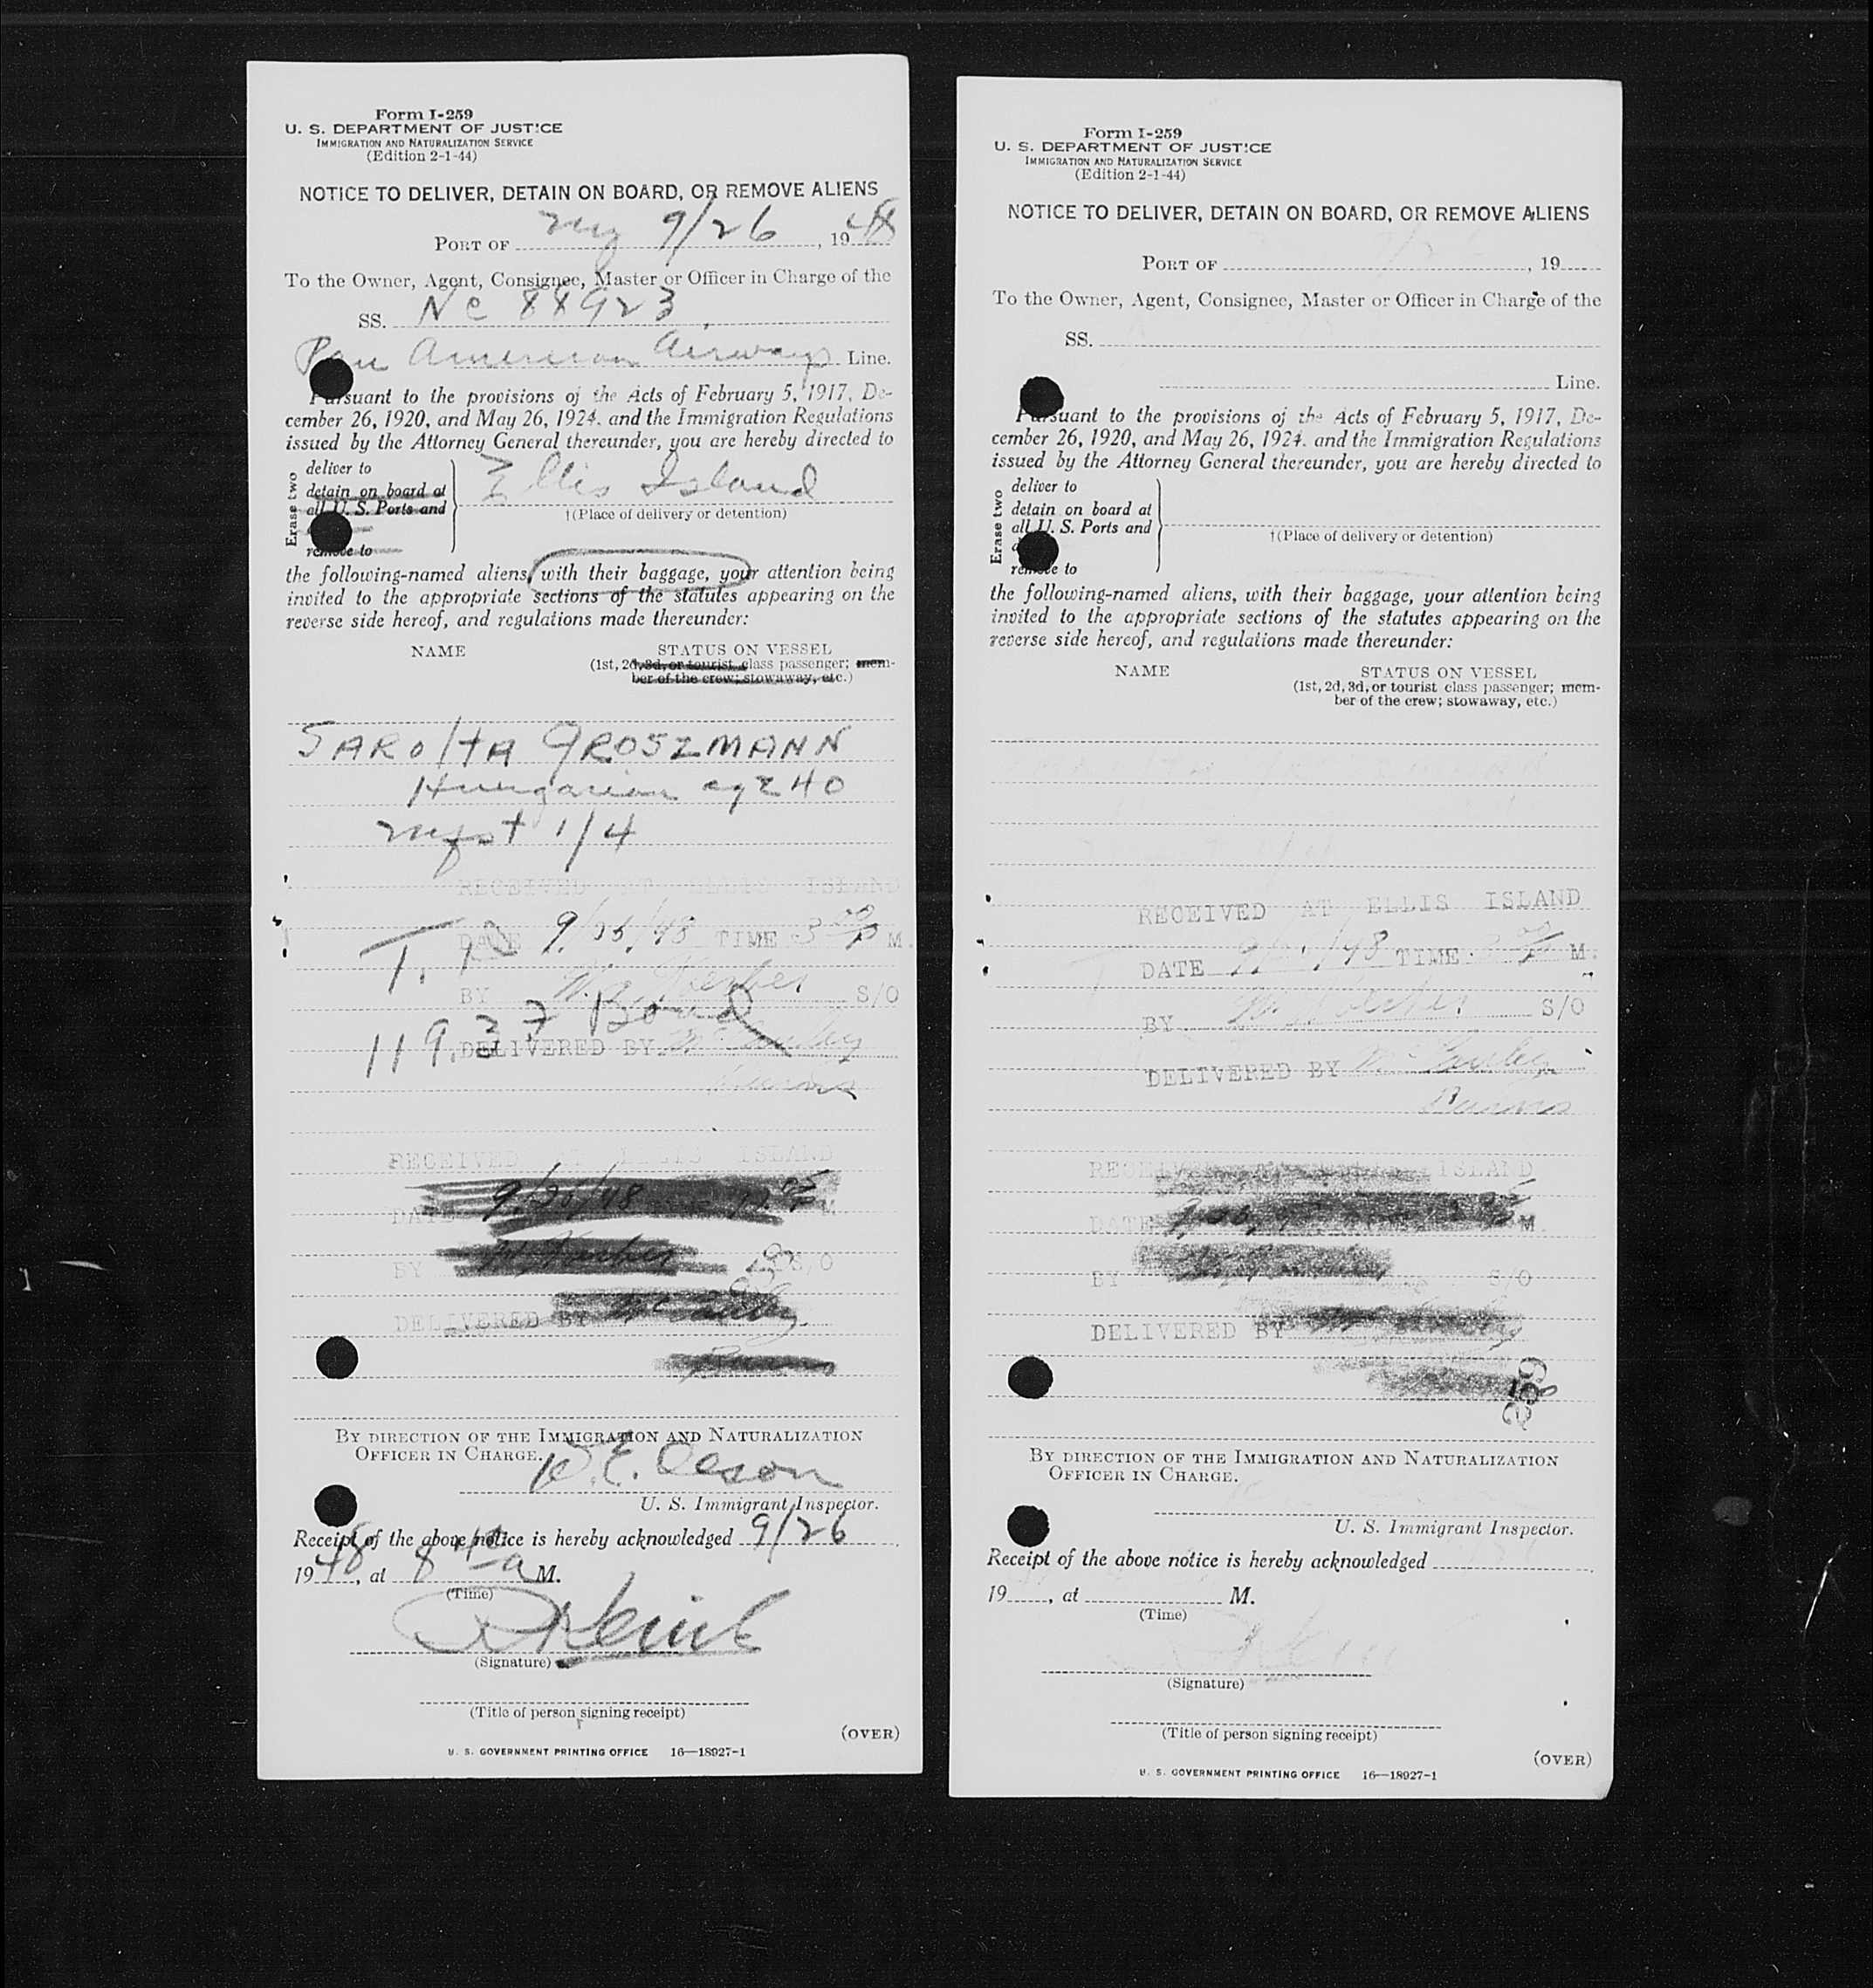 Form I-259
U. S. DEPARTMENT OF JUSTICE
IMMIGRATION AND NATURALIZATION SERVICE
(Edition 2-1-44)
NOTICE TO DELIVER, DETAIN ON BOARD, OR REMOVE ALIENS
PORT OF 9/26, 1948
To the Owner, Agent, Consignee, Master or Officer in Charge of the
SS. NC 88923
Pan American Airways Line.
Pursuant to the provisions of the Acts of February 5, 1917, De-
cember 26, 1920, and May 26, 1924, and the Immigration Regulations
issued by the Attorney General thereunder, you are hereby directed to
Erase two
deliver to
detain on board at
all U. S. Ports and
remove to
Ellis Island
†(Place of delivery or detention)
the following-named aliens, with their baggage, your attention being
invited to the appropriate sections of the statutes appearing on the
reverse side hereof, and regulations made thereunder:
NAME STATUS ON VESSEL
(1st, 2d, 3d, or tourist class passenger; mem-
ber of the crew; stowaway, etc.)
SAROLTA GROSZMANN
Hungarian age 40
mfst 1/4
RECEIVED AT ELLIS ISLAND
DATE 9/26/48 TIME 3 00 P M.
T.
BY S/O
119.37 Bond
DELIVERED BY
RECEIVED AT ELLIS ISLAND
DATE 9/26/48 M
BY S/O
259
DELIVERED BY
BY DIRECTION OF THE IMMIGRATION AND NATURALIZATION
OFFICER IN CHARGE.
U. S. Immigrant Inspector.
Receipt of the above notice is hereby acknowledged 9/26
1948, at 8 a M.
(Time)
(Signature)
(Title of person signing receipt)
(OVER)
U. S. GOVERNMENT PRINTING OFFICE 16—18927-1
Form I-259
U. S. DEPARTMENT OF JUSTICE
IMMIGRATION AND NATURALIZATION SERVICE
(Edition 2-1-44)
NOTICE TO DELIVER, DETAIN ON BOARD, OR REMOVE ALIENS
PORT OF , 19
To the Owner, Agent, Consignee, Master or Officer in Charge of the
SS.
Line.
Pursuant to the provisions of the Acts of February 5, 1917, De-
cember 26, 1920, and May 26, 1924, and the Immigration Regulations
issued by the Attorney General thereunder, you are hereby directed to
Erase two
deliver to
detain on board at
all U. S. Ports and
remove to
†(Place of delivery or detention)
the following-named aliens, with their baggage, your attention being
invited to the appropriate sections of the statutes appearing on the
reverse side hereof, and regulations made thereunder:
NAME STATUS ON VESSEL
(1st, 2d, 3d, or tourist class passenger; mem-
ber of the crew; stowaway, etc.)
RECEIVED AT ELLIS ISLAND
DATE TIME M.
BY S/O
DELIVERED BY
Burns
RECEIVED AT ELLIS ISLAND
DATE M.
BY S/O
DELIVERED BY
259
BY DIRECTION OF THE IMMIGRATION AND NATURALIZATION
OFFICER IN CHARGE.
U. S. Immigrant Inspector.
Receipt of the above notice is hereby acknowledged
19, at M.
(Time)
(Signature)
(Title of person signing receipt)
(OVER)
U. S. GOVERNMENT PRINTING OFFICE 16—18927-1